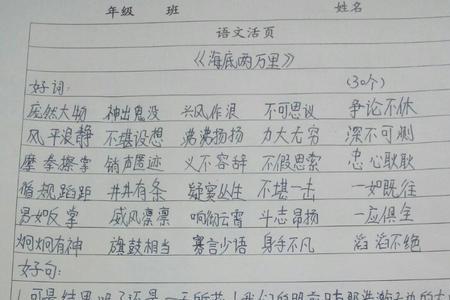 年级 班 姓名
语文活页
《海底两万里》
好词: (30个)
庞然大物 神出鬼没 兴风作浪 不可思议 争论不休
风平浪静 不堪设想 沸沸扬扬 力大无穷 深不可测
摩拳擦掌 销声匿迹 义不容辞 不假思索 忠心耿耿
循规蹈距 井井有条 疑窦丛生 不堪一击 一如既往
易如反掌 威风凛凛 响彻云霄 斗志昂扬 一应俱全
炯炯有神 旗鼓相当 寡言少语 身手不凡 滔滔不绝
好句: